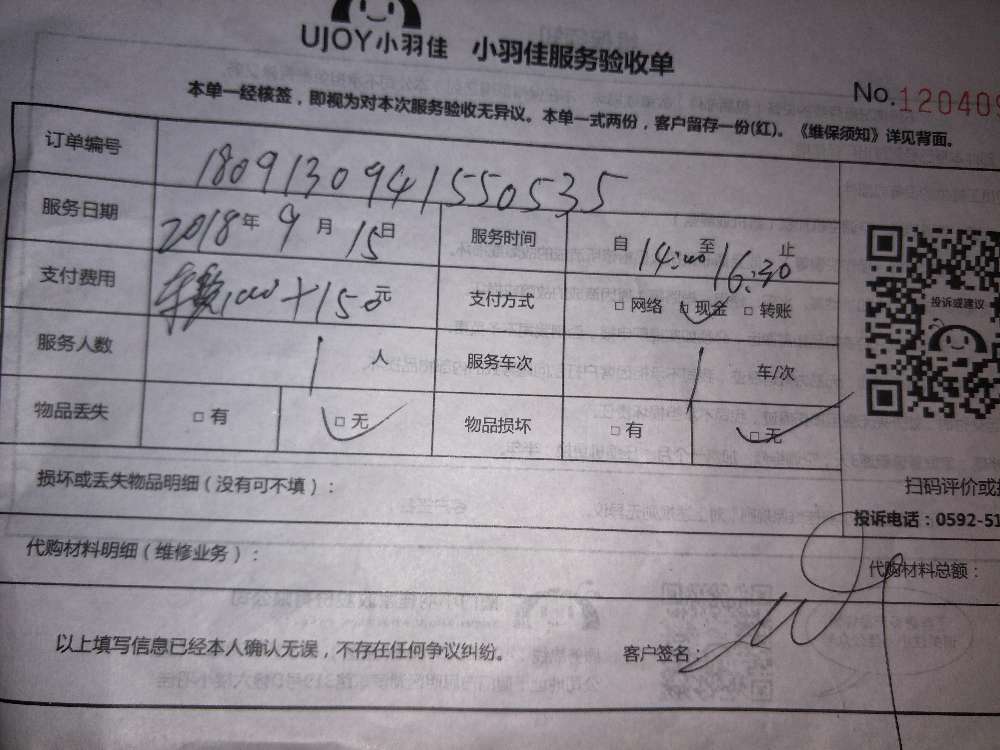 UJOY小羽佳 小羽佳服务验收单
No.120409
本单一经核签，即视为对本次服务验收无异议。本单一式两份，客户留存一份(红)。《维保须知》详见背面。
订单编号 1809130941550535
服务日期 2018年9月15日 服务时间 自14:00至16:30止
支付费用 +150元 支付方式 □网络 □现金 □转账
投诉或建议
服务人数 1人 服务车次 1车/次
物品丢失 □有 □无 物品损坏 □有 □无
损坏或丢失物品明细（没有可不填）：
扫码评价或
投诉电话：0592-51
代购材料明细（维修业务）： 代购材料总额：
以上填写信息已经本人确认无误，不存在任何争议纠纷。 客户签名：